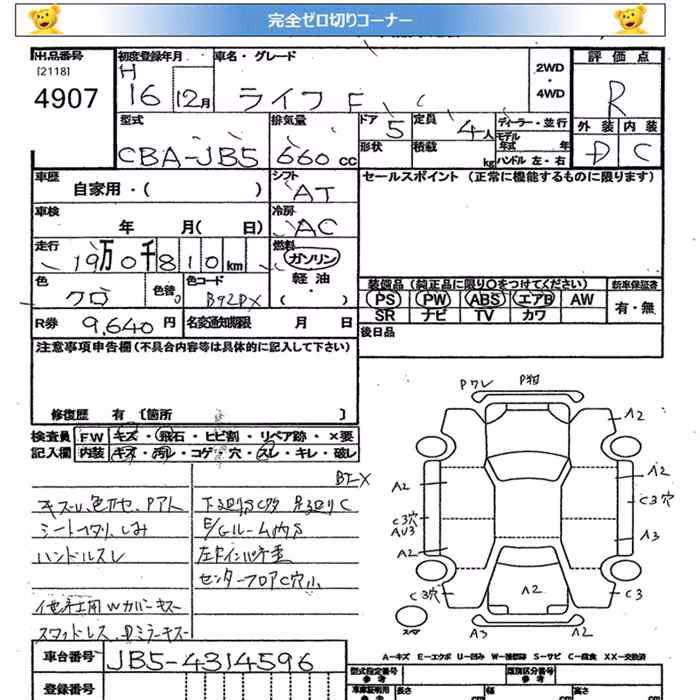 完全ゼロ切りコーナー
出品番号 初度登録年月 車名・グレード 評価点
[2118] H 2WD
4907 16 12月 ライフ F C ・ 4WD R
型式 排気量 ドア 5 定員 4人 ディーラー・並行 外装 内装
CBA-JB5 660cc 形状 積載 kg モデル年式 年 D C
ハンドル 左・右
車歴 シフト セールスポイント (正常に機能するものに限ります)
自家用・( ) AT
車検 冷房
年 月( 日) AC
走行 燃料
19万0千810km ガソリン
色 色替 色コード 軽油 装備品 (純正品に限り○をつけてください) 新車保証書
クロ B92PX ( ・ ) PS PW ABS エアB AW 有・無
R券 9,640円 名変通知期限 月 日 SR ナビ TV カワ
注意事項申告欄 (不具合内容等は具体的に記入して下さい) 後日品
修復歴 有 〔箇所 〕
検査員 FW キズ・飛石・ヒビ割・リペア跡・×要
記入欄 内装 キズ・汚レ・コゲ・穴・スレ・キレ・破レ
シートヘタリ、しみ
ハンドルスレ E/Gルーム内S
センターフロアC穴小
A2
A2
A2 C3穴
C3穴
A2 A3
C3穴 A2 C3
スペア A3 A2
A-キズ E-エクボ U-凹み W-補修跡 S-サビ C-腐食 XX-交換済
車台番号 JB5-4314596 型式指定番号 類別区分番号
登録番号 車庫証明用 長さ cm 幅 cm 高さ cm